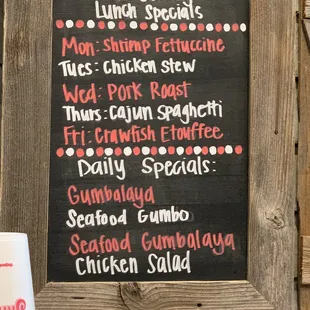 Lunch Specials
Mon: Shrimp Fettuccine
Tues: Chicken Stew
Wed: Pork Roast
Thurs: Cajun Spaghetti
Fri: Crawfish Etouffee
Daily Specials:
Gumbalaya
Seafood Gumbo
Seafood Gumbalaya
Chicken Salad